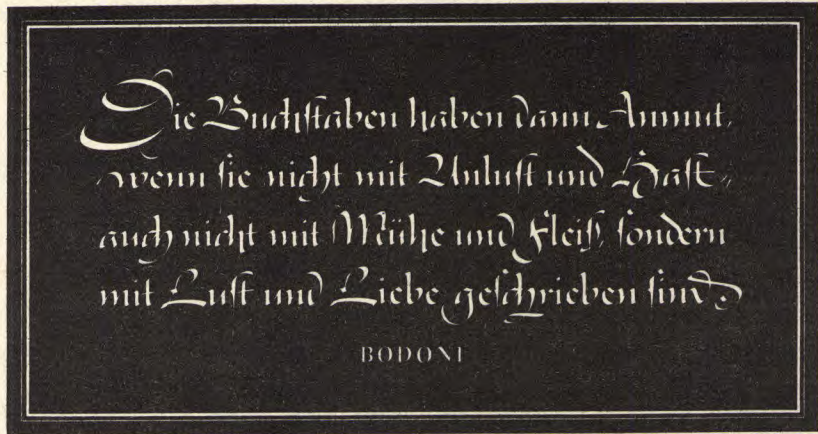 Die Buchstaben haben dann Anmut,
wenn sie nicht mit Unlust und Hast,
auch nicht mit Mühe und Fleiß, sondern
mit Lust und Liebe geschrieben sind.
BODONI